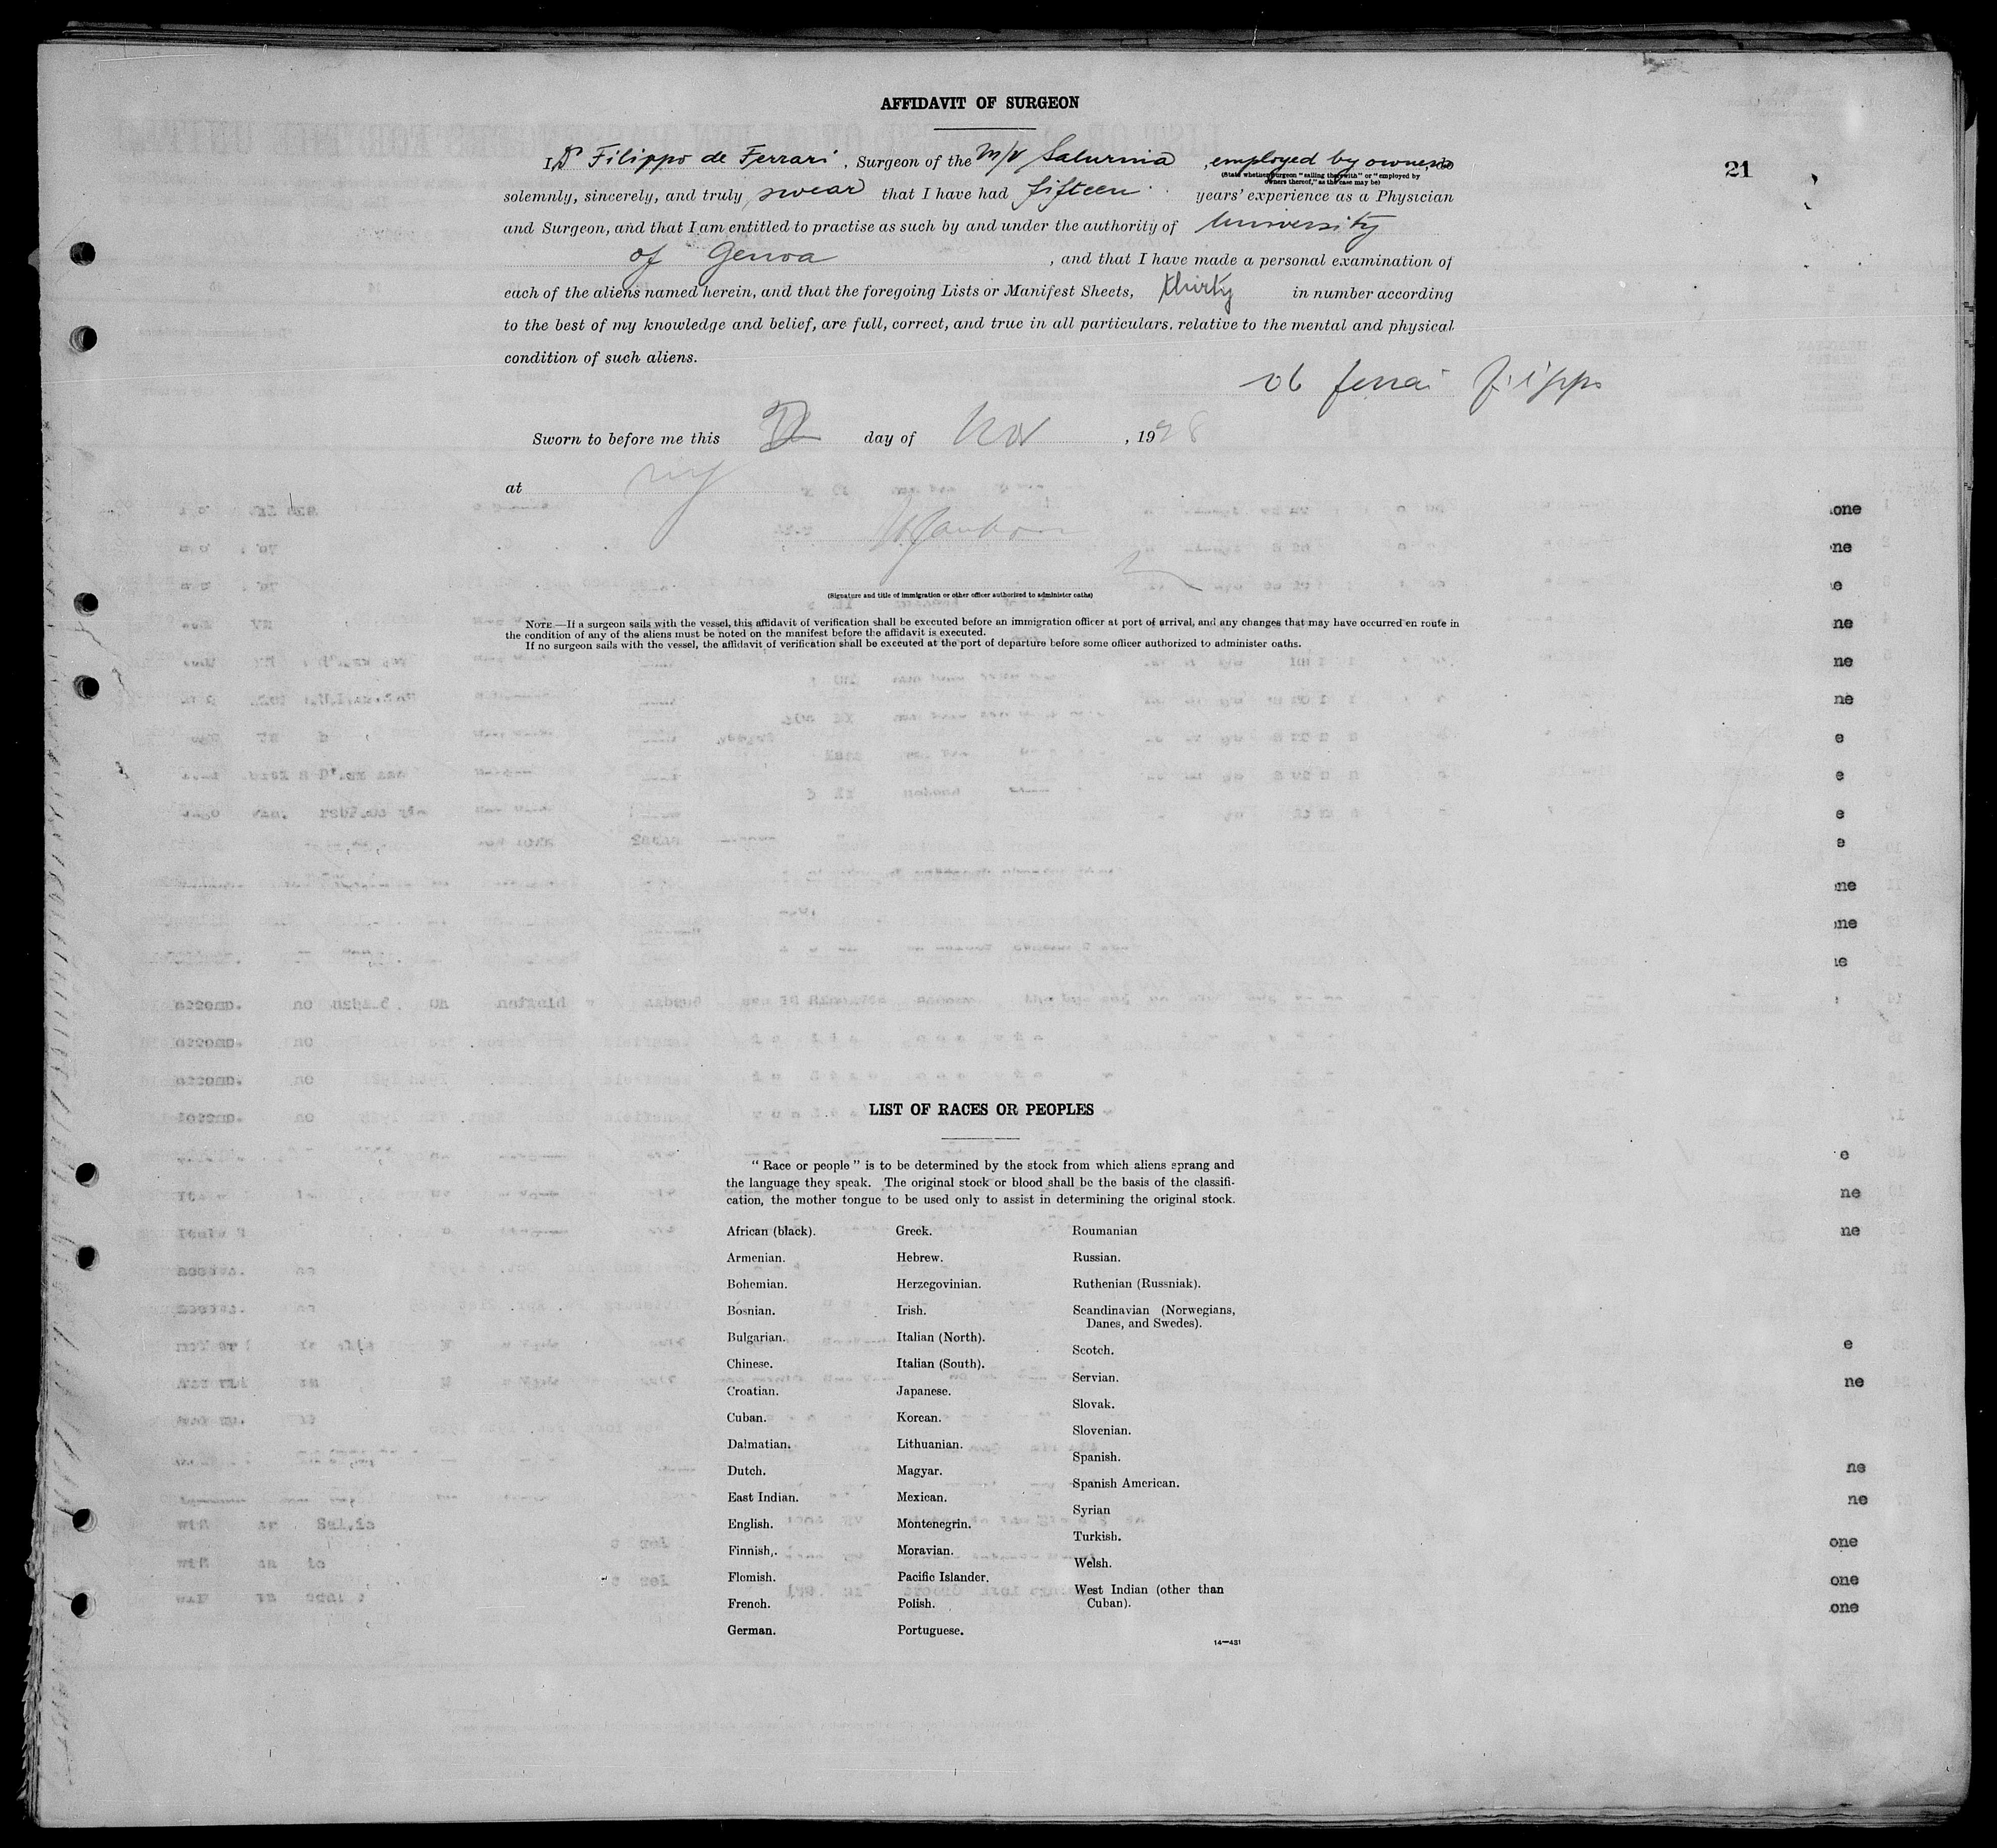 AFFIDAVIT OF SURGEON
I, Dr Filippo de Ferrari, Surgeon of the M/V Saturnia, employed by owners, do
(State whether surgeon "sailing therewith" or "employed by
owners thereof," as the case may be)
21
solemnly, sincerely, and truly swear that I have had fifteen years' experience as a Physician
and Surgeon, and that I am entitled to practise as such by and under the authority of University
of Genoa, and that I have made a personal examination of
each of the aliens named herein, and that the foregoing Lists or Manifest Sheets, thirty in number according
to the best of my knowledge and belief, are full, correct, and true in all particulars, relative to the mental and physical
condition of such aliens.
de Ferrari Filippo
Sworn to before me this day of Nov, 1928
at NY
(Signature and title of immigration or other officer authorized to administer oaths)
NOTE.—If a surgeon sails with the vessel, this affidavit of verification shall be executed before an immigration officer at port of arrival, and any changes that may have occurred en route in
the condition of any of the aliens must be noted on the manifest before the affidavit is executed.
If no surgeon sails with the vessel, the affidavit of verification shall be executed at the port of departure before some officer authorized to administer oaths.
LIST OF RACES OR PEOPLES
"Race or people" is to be determined by the stock from which aliens sprang and
the language they speak. The original stock or blood shall be the basis of the classifi-
cation, the mother tongue to be used only to assist in determining the original stock.
African (black).
Armenian.
Bohemian.
Bosnian.
Bulgarian.
Chinese.
Croatian.
Cuban.
Dalmatian.
Dutch.
East Indian.
English.
Finnish.
Flemish.
French.
German.
Greek.
Hebrew.
Herzegovinian.
Irish.
Italian (North).
Italian (South).
Japanese.
Korean.
Lithuanian.
Magyar.
Mexican.
Montenegrin.
Moravian.
Pacific Islander.
Polish.
Portuguese.
Roumanian
Russian.
Ruthenian (Russniak).
Scandinavian (Norwegians,
Danes, and Swedes).
Scotch.
Servian.
Slovak.
Slovenian.
Spanish.
Spanish American.
Syrian
Turkish.
Welsh.
West Indian (other than
Cuban).
14—431
one
ne
e
ne
ne
ne
e
e
e
e
ne
ne
e
e
ne
ne
e
ne
ne
ne
one
one
one